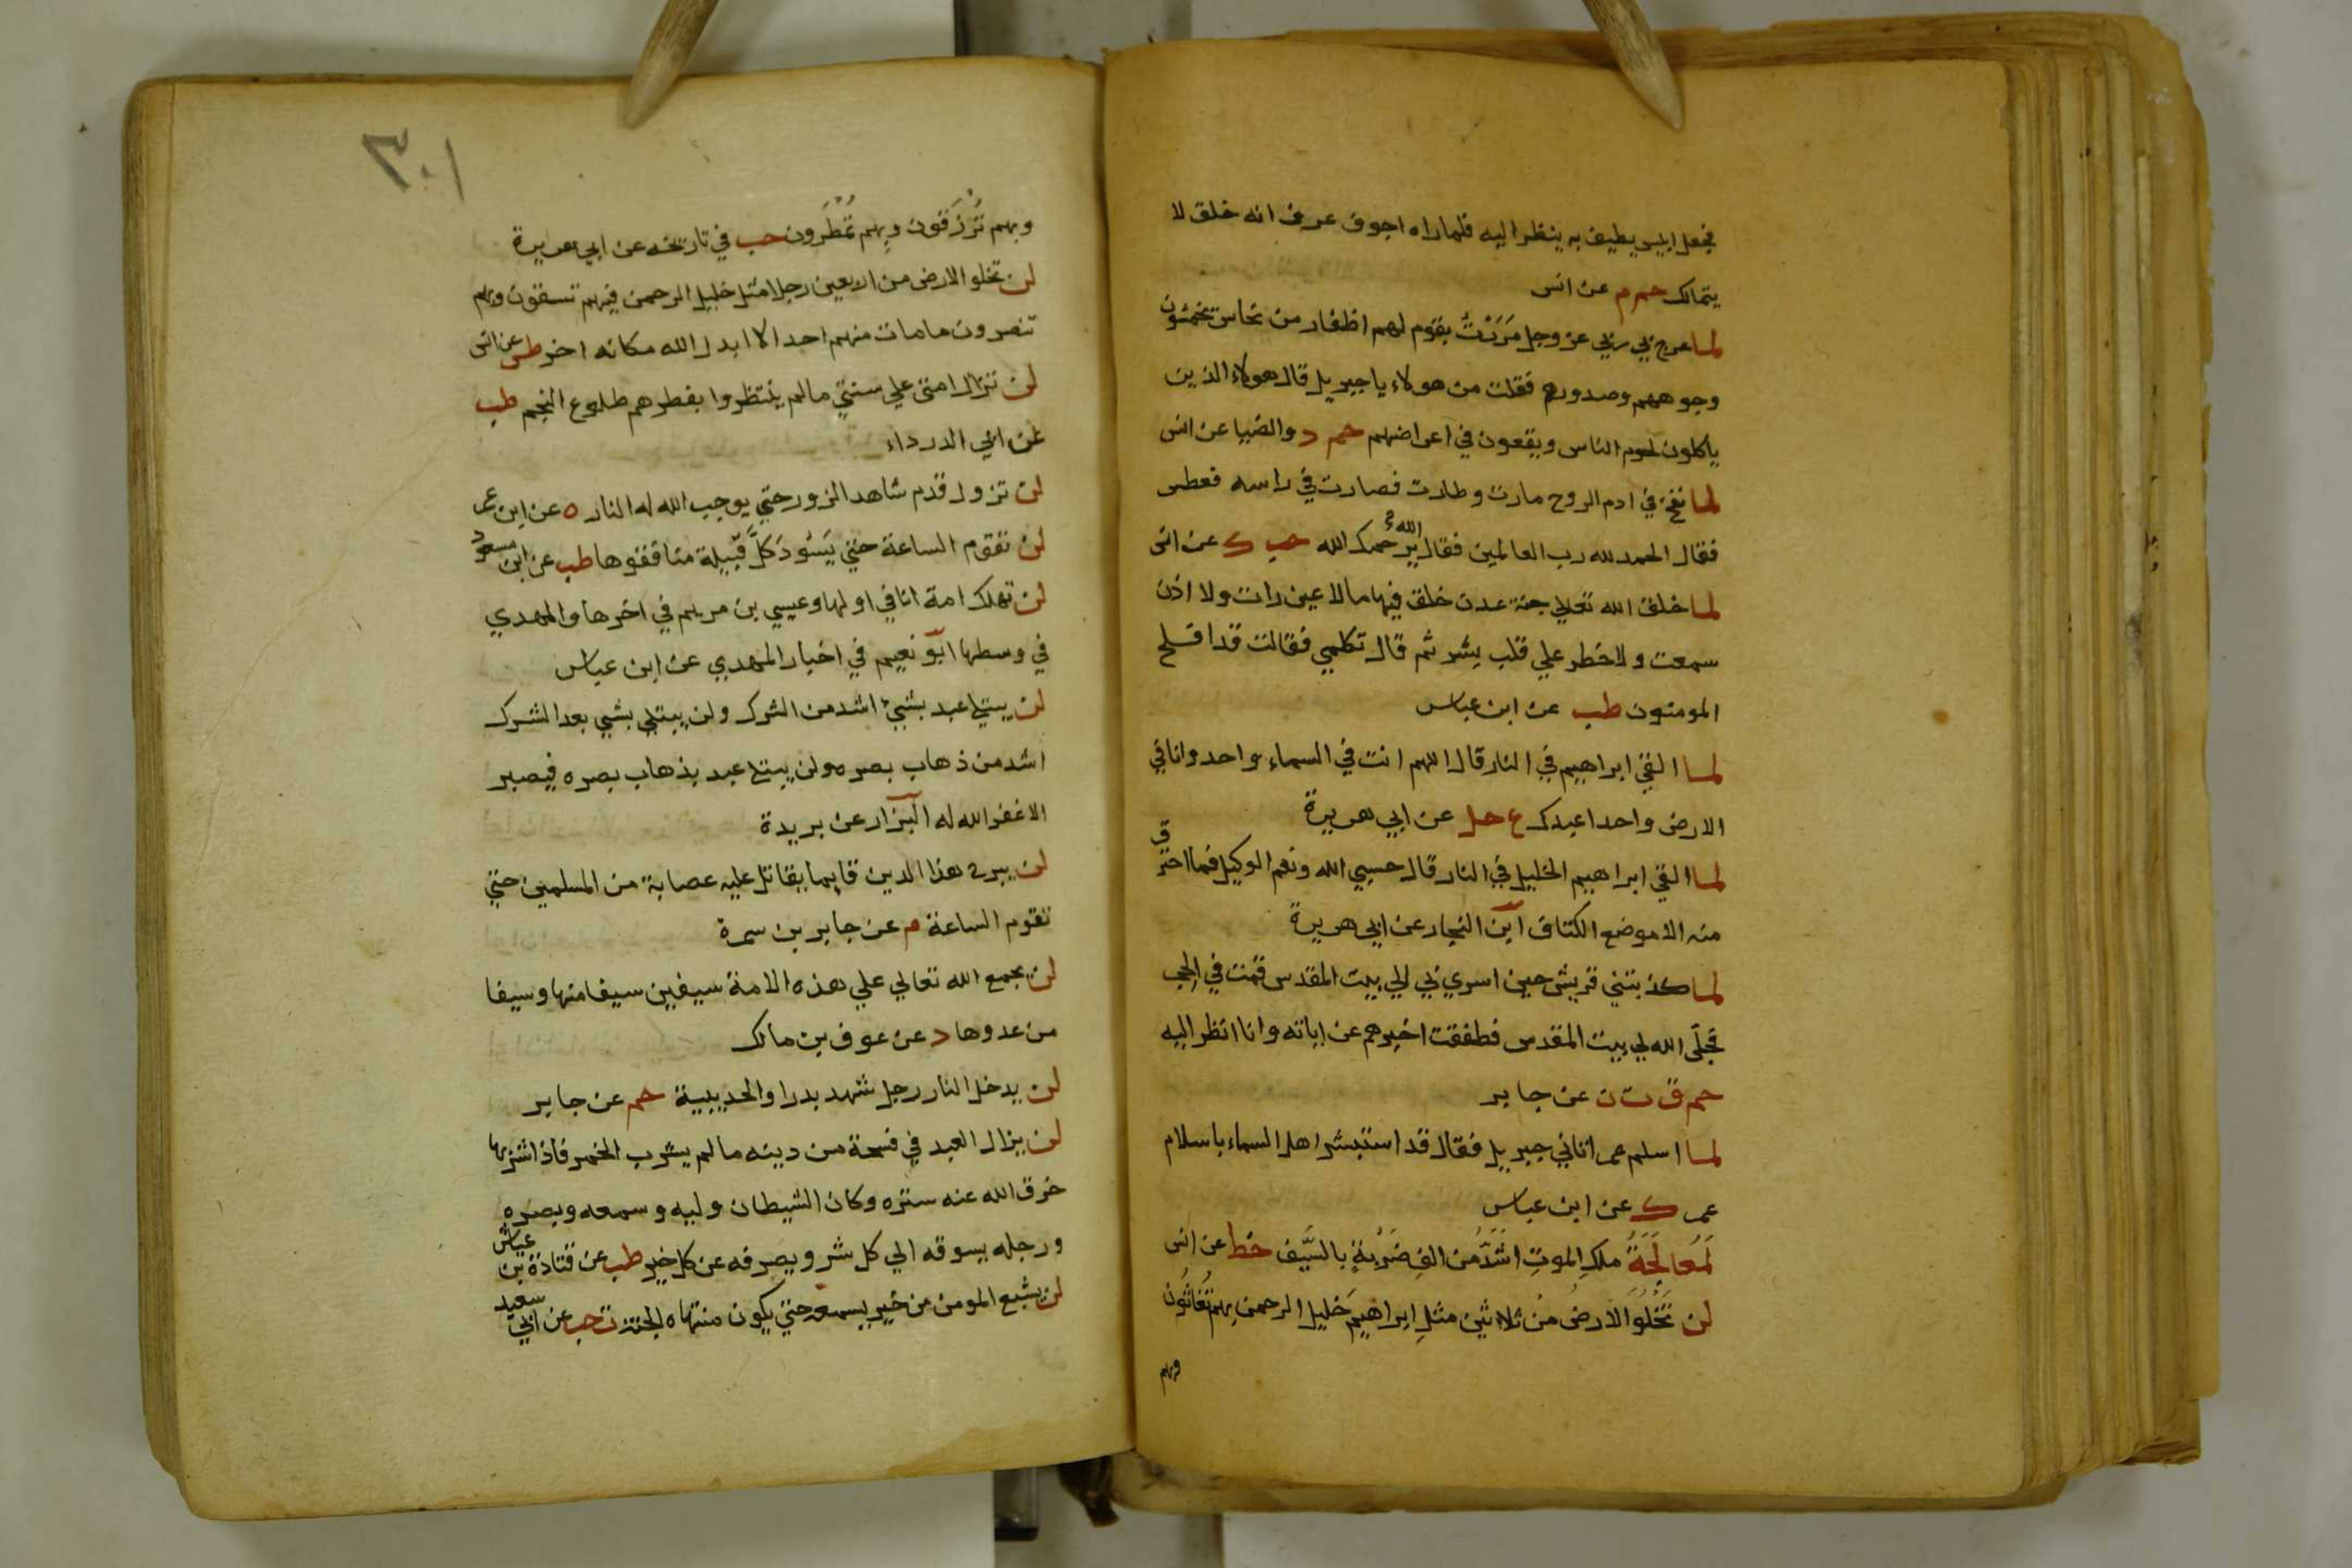 فجعل ابليس يطيف به ينظر اليه فلما راه اجوف عرف انه خلق لا
يتمالك حم م عن انس
لما عرج بي ربي عز وجل مَرَرْتُ بقوم لهم اظفار من نحاس يخمشون
وجوههم وصدورهم فقلت من هولاء يا جبريل قال هولاء الذين
ياكلون لحوم الناس ويقعون في اعراضهم حم د والضيا عن انس
لما نفخ في ادم الروح مارت وطارت فصارت في راسه فعطس
فقال الحمد لله رب العالمين فقال الله يرحمك الله حب ك عن انس
لما خلق الله تعالي جنة عدن خلق فيها ما لا عين رات ولا اذن
سمعت ولا خطر علي قلب بشر ثم قال تكلمي فقالت قد افلح
المومنون طب عن ابن عباس
لما القي ابراهيم في النار قال اللهم انت في السماء واحد وانا في
الارض واحد اعبدك ع حل عن ابي هريرة
لما القي ابراهيم الخليل في النار قال حسبي الله ونعم الوكيل فما احترق
منه الا موضع الكتاف ابن النجار عن ابي هريرة
لما كذبتني قريش حين اسري بي الي بيت المقدس قمت في الحجر
فجَلَّى الله لي بيت المقدس فطفقت اخبرهم عن اياته وانا انظر اليه
حم ق ت ن عن جابر
لما اسلم عمر اتاني جبريل فقال قد استبشر اهل السماء باسلام
عمر ك عن ابن عباس
لَمُعالَجَةُ ملكِ الموتِ اشَدُّ من الفِ ضَرْبةٍ بالسَّيف خط عن انس
لن تَخْلُوَ الارضُ من ثلاثين مثلِ ابراهيمَ خليل الرحمن بهم تُغاثُون
وبهم
٣٠١
وبهم تُرْزَقون وبِهم تُمْطَرون حب في تاريخه عن ابي هريرة
لن تخلو الارض من اربعين رجلا مثل خليل الرحمن فبهم تسقون وبهم
تنصرون ما مات منهم احد الا ابدل الله مكانه اخر طس عن انس
لن تزال امتي علي سنتي ما لم ينتظروا بفطرهم طلوع النجم طب
عن ابي الدرداء
لن تزول قدم شاهد الزور حتي يوجب الله له النار ه عن ابن عمر
لن تقوم الساعة حتي يَسُودَ كلَّ قَبِيلة منافقوها طب عن ابن مسعود
لن تهلك امة انا في اولها وعيسي بن مريم في اخرها والمهدي
في وسطها ابو نعيم في اخبار المهدي عن ابن عباس
لن يبتلي عبد بشيء اشد من الشرك ولن يبتلي بشي بعد الشرك
اشد من ذهاب بصره ولن يبتلي عبد بذهاب بصره فيصبر
الا غفر الله له البزار عن بريدة
لن يبرح هذا الدين قايما يقاتل عليه عصابة من المسلمين حتي
تقوم الساعة م عن جابر بن سمرة
لن يجمع الله تعالي علي هذه الامة سيفين سيفا منها وسيفا
من عدوها د عن عوف بن مالك
لن يدخل النار رجل شهد بدرا والحديبية حم عن جابر
لن يزال العبد في فسحة من دينه ما لم يشرب الخمر فاذا شربها
خرق الله عنه ستره وكان الشيطان وليه وسمعه وبصره
ورجله يسوقه الي كل شر ويصرفه عن كل خير طب عن قتادة بن عياش
لن يشبع المومن من خير يسمعه حتي يكون منتهاه الجنة ت حب عن ابي سعيد